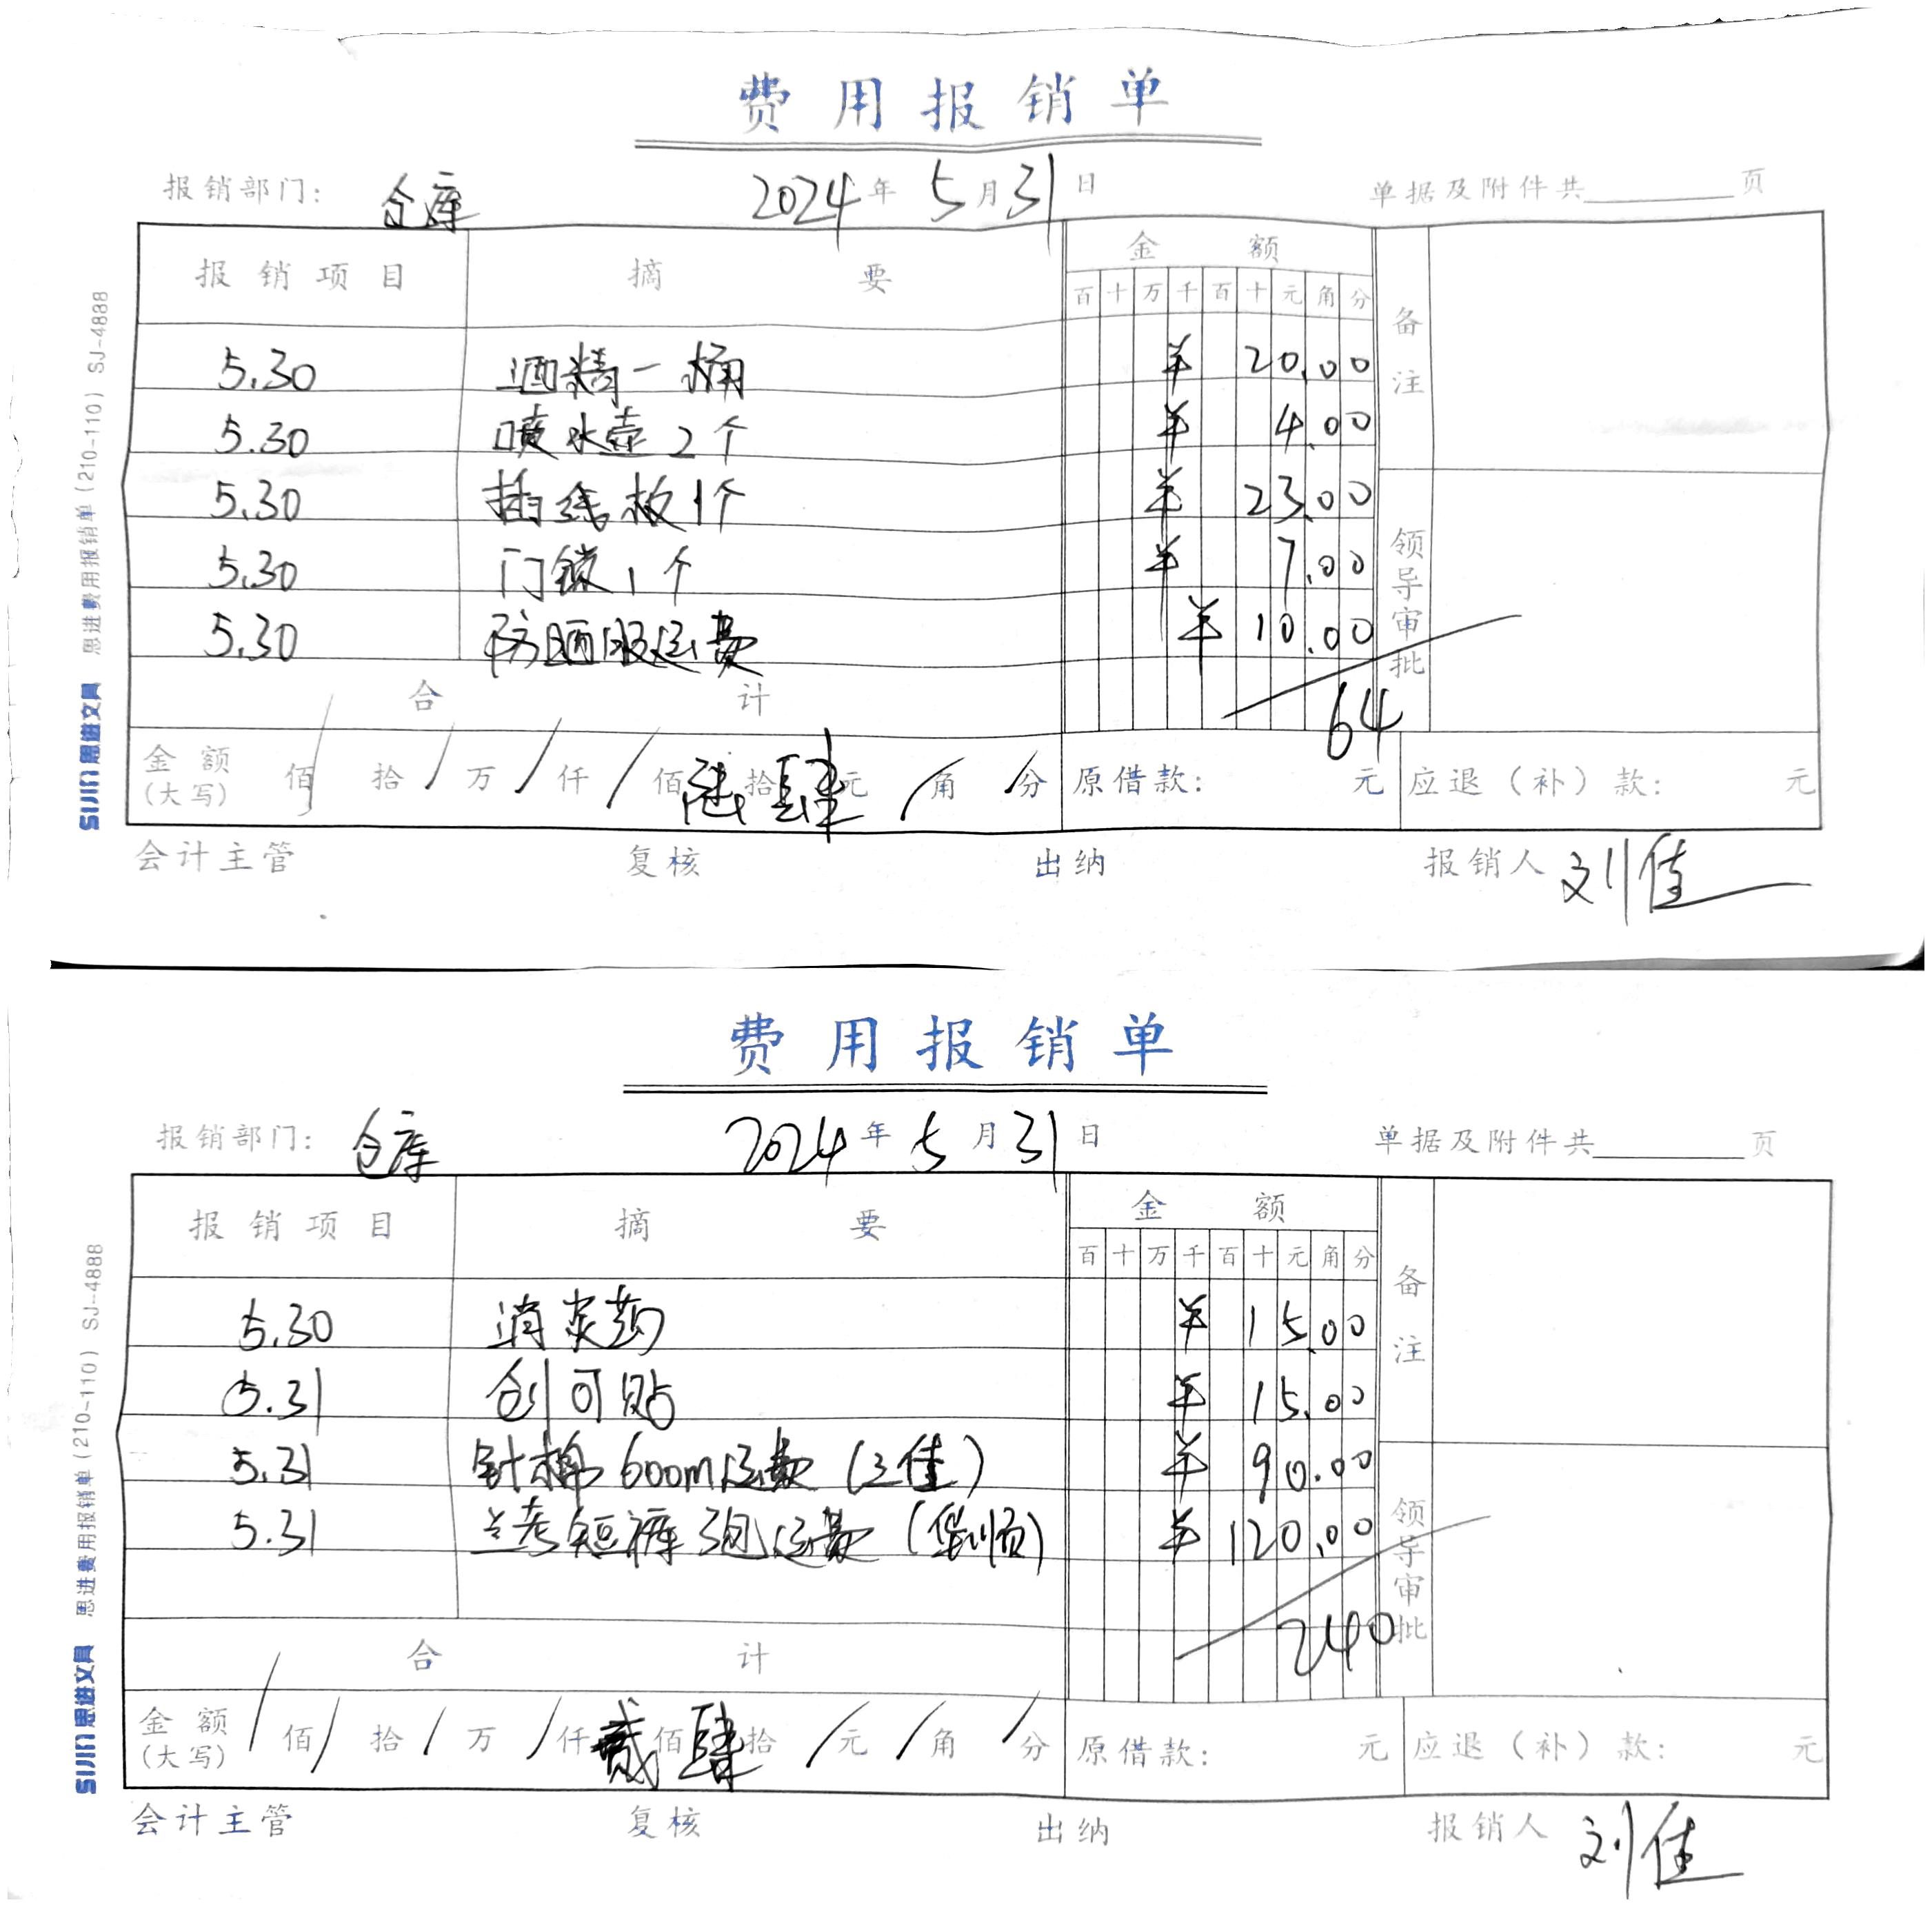 费用报销单
报销部门: 仓库 2024年5月31日 单据及附件共 页
报销项目 摘要 金额 备注
百十万千百十元角分
5.30 酒精一桶 ¥20.00
5.30 喷水壶2个 ¥4.00
5.30 插线板1个 ¥23.00
5.30 门锁1个 ¥7.00
5.30 防晒服运费 ¥10.00
领导审批
合计 64
金额(大写) 佰/拾/万/仟/佰陆拾肆元/角/分 原借款: 元 应退(补)款: 元
会计主管 复核 出纳 报销人 刘佳
SIJIN思进文具 思进费用报销单(210-110) SJ-4888
费用报销单
报销部门: 仓库 2024年5月31日 单据及附件共 页
报销项目 摘要 金额 备注
百十万千百十元角分
5.30 消炎药 ¥15.00
5.31 创可贴 ¥15.00
5.31 针棉600m运费(三佳) ¥90.00
5.31 兰考短裤3包运费(华顺) ¥120.00
领导审批
合计 240
金额(大写) /佰/拾/万/仟贰佰肆拾/元/角/分 原借款: 元 应退(补)款: 元
会计主管 复核 出纳 报销人 刘佳
SIJIN思进文具 思进费用报销单(210-110) SJ-4888